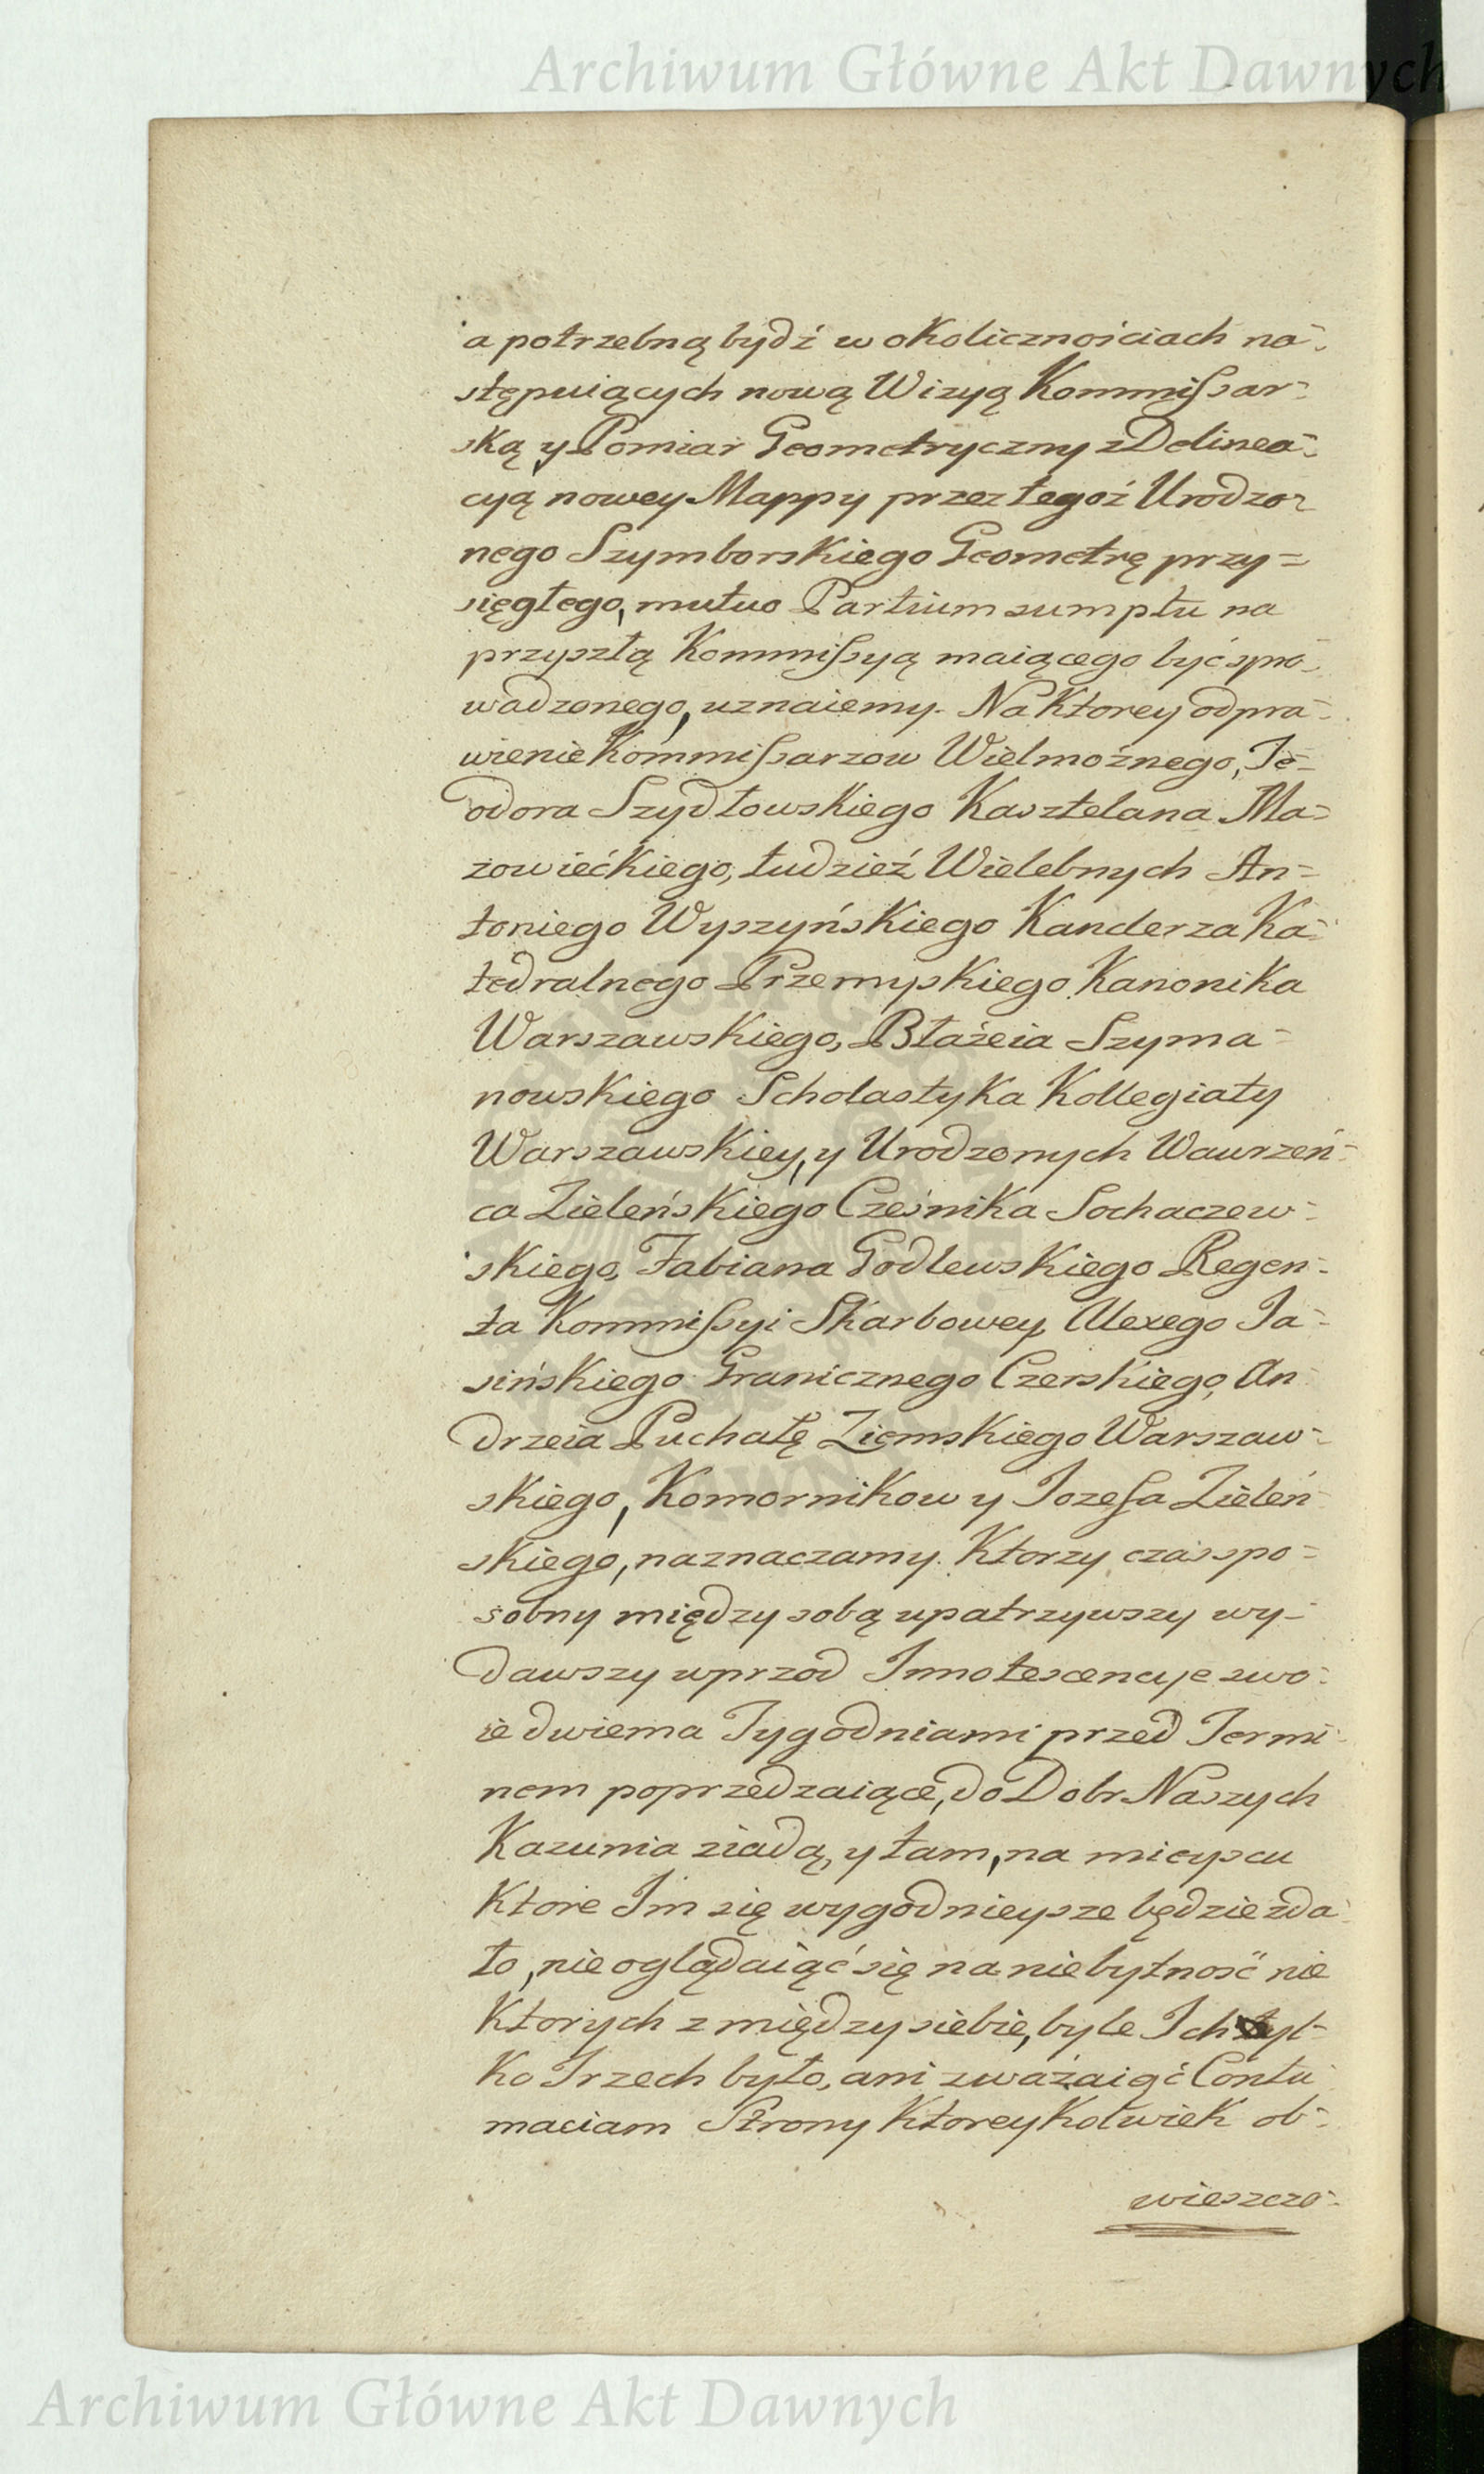 Archiwum Główne Akt Dawnych
a potrzebną bydź w okolicznościach na-
stępuiących nową Wizyą Kommissar-
ską y Pomiar Geometryczny z Delinea-
cyą nowey Mappy przez tegoż Urodzo-
nego Szymborskiego Geometrę przy-
sięgłego, mutuo Partium sumptu na
przyszłą Kommissyą maiącego być spro-
wadzonego, uznaiemy. Na ktorey odpra-
wienie Kommissarzow Wielmożnego, Te-
odora Szydłowskiego Kasztelana Ma-
zowieckiego, tudzież Wielebnych An-
toniego Wyszyńskiego Kanclerza Ka-
tedralnego Przemyskiego Kanonika
Warszawskiego, Błażeia Szyma-
nowskiego Scholastyka Kollegiaty
Warszawskiey, y Urodzonych Wawrzeń-
ca Zieleńskiego Cześnika Sochaczew-
skiego, Fabiana Godlewskiego Regen-
ta Kommissyi Skarbowey, Alexego Ja-
sińskiego Granicznego Czerskiego, An-
drzeia Puchałę Ziemskiego Warszaw-
skiego, Komornikow y Jozefa Zieleń-
skiego, naznaczamy. Ktorzy czas spo-
sobny między sobą upatrzywszy wy-
dawszy wprzod Innotescencye swo-
ie dwiema Tygodniami przed Termi-
nem poprzedzaiące, do Dobr Naszych
Kazunia ziadą, y tam, na mieyscu
Ktore Im się wygodnieysze będzie zda-
ło, nie oglądaiąć się na niebytność nie
Ktorych z między siebie, byle Ich tyl-
ko Trzech było, ani zważaiąć Contu-
maciam Strony Ktoreykolwiek ob-
wieszczo-
Archiwum Główne Akt Dawnych